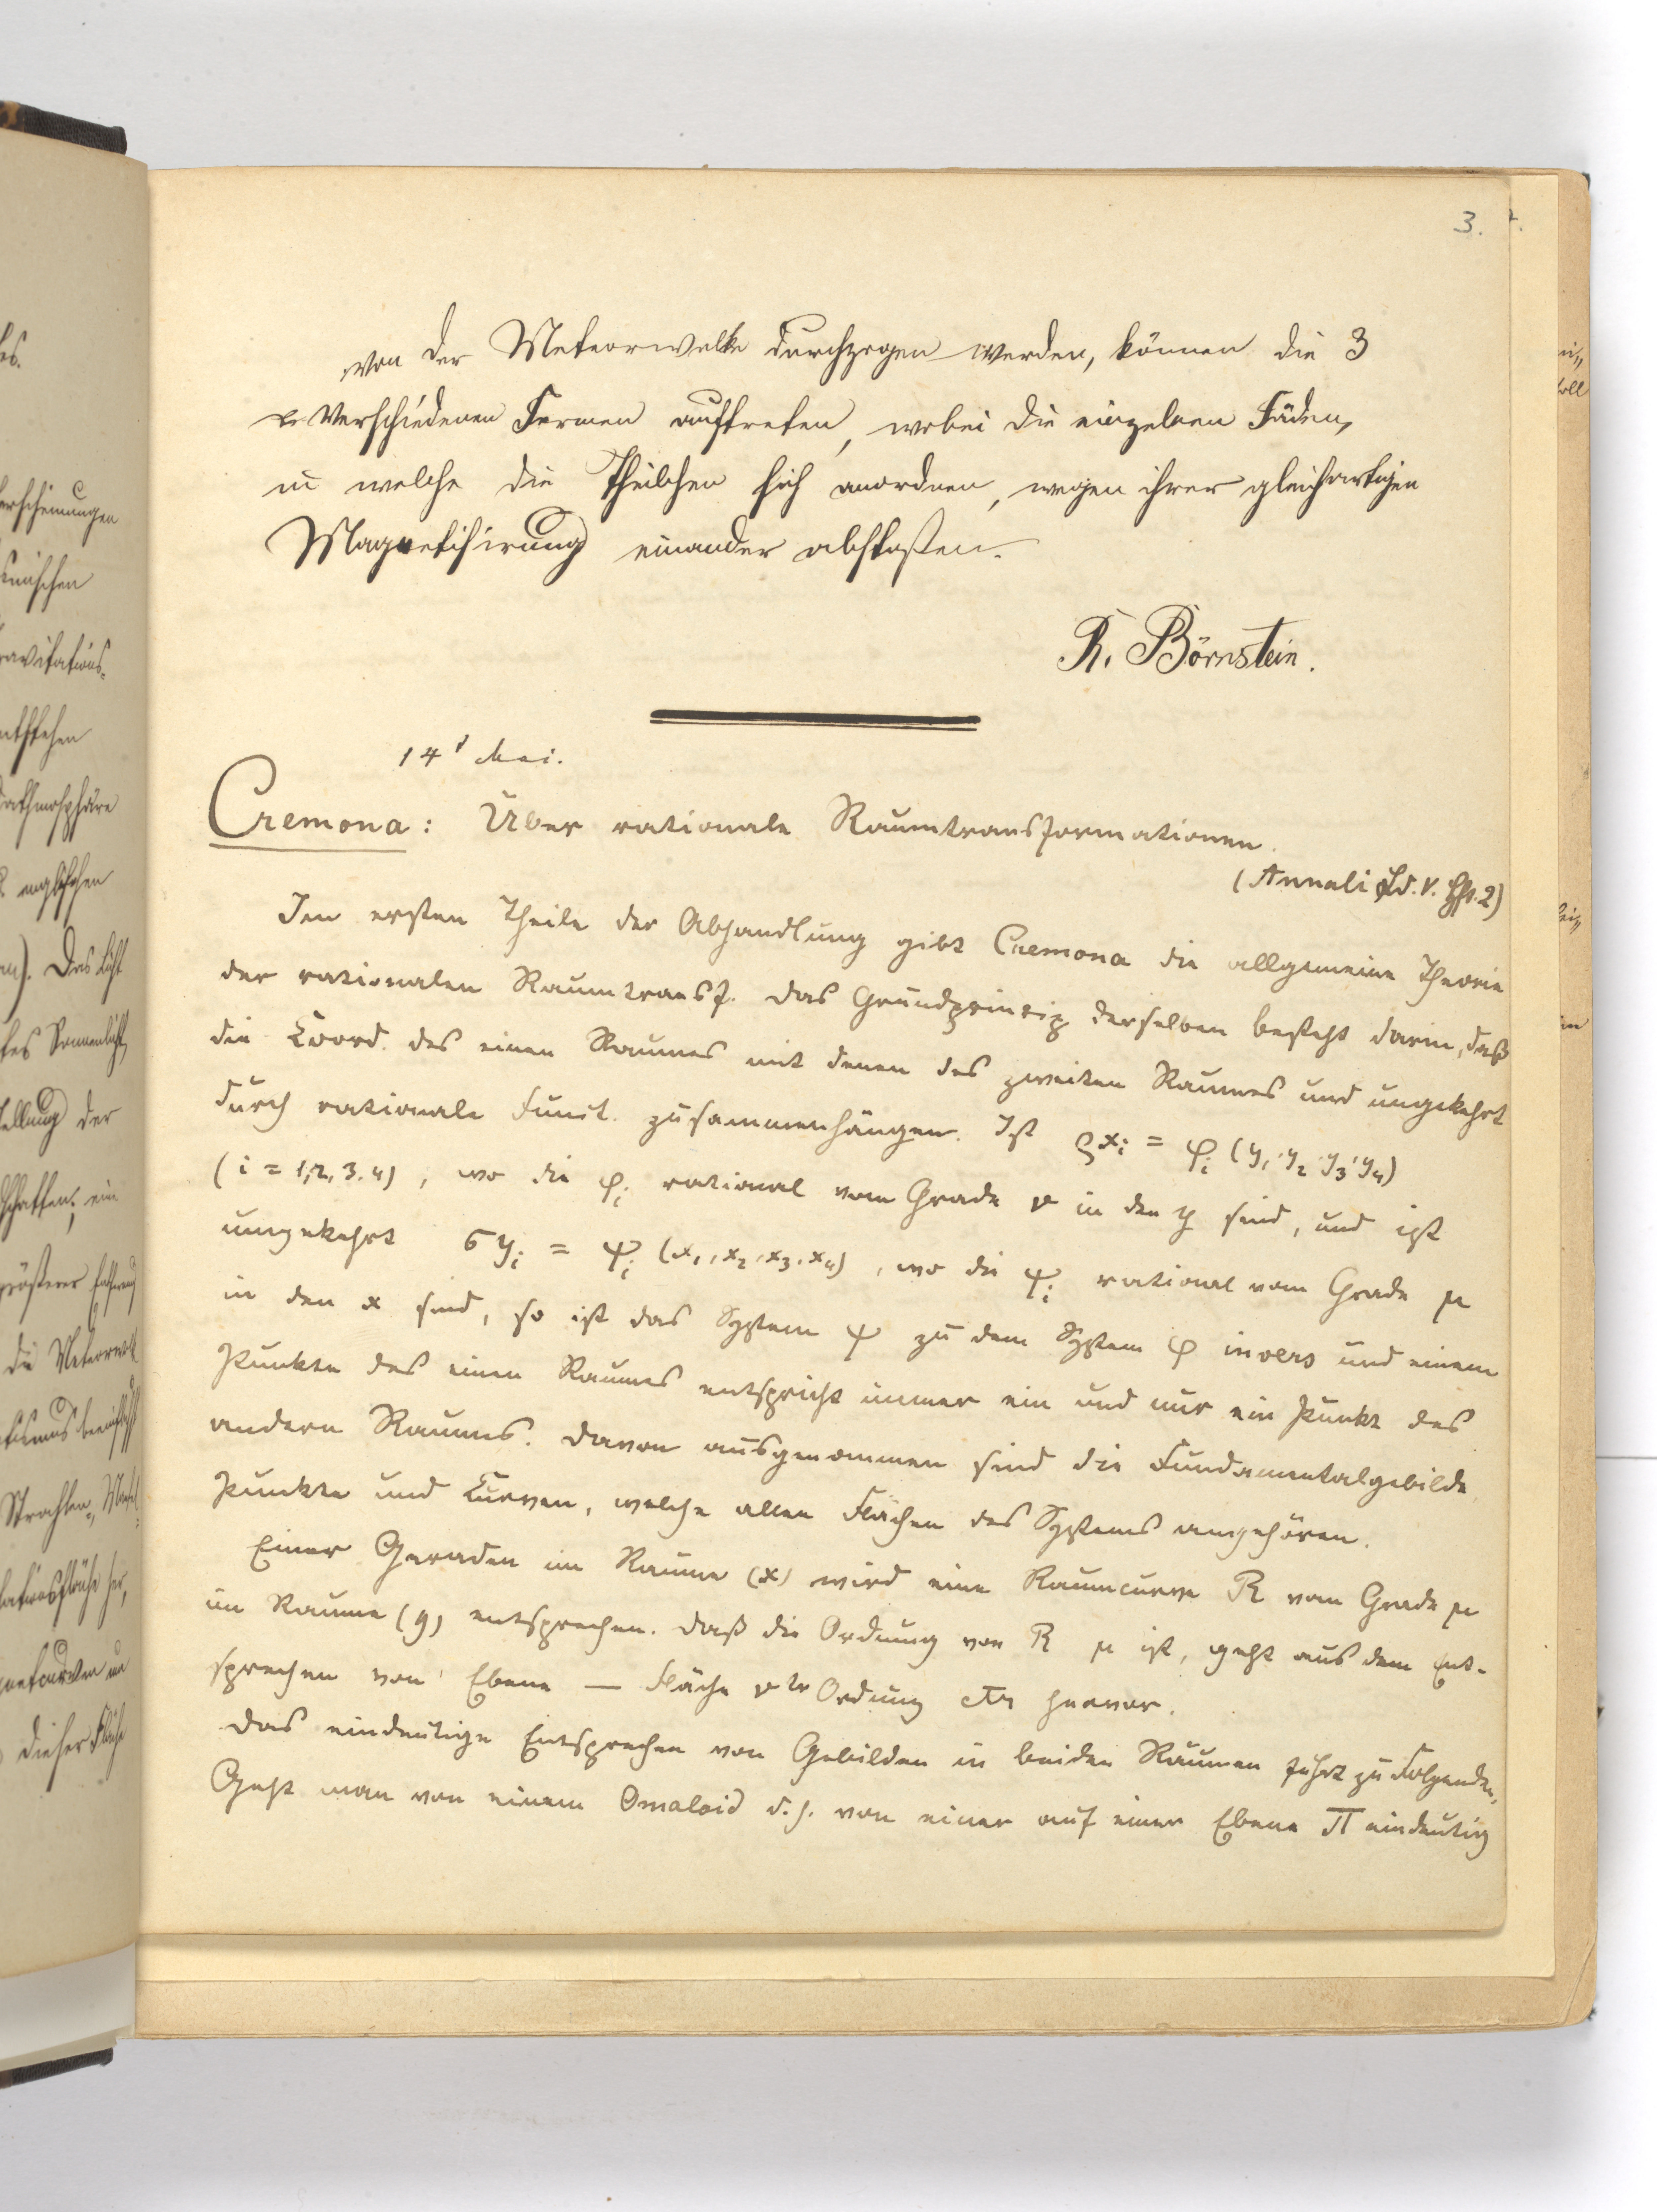 3.
von der Meteorwolke durchzogen werden, können die 3
verschiedenen Formen auftreten, wobei die einzelnen Fäden,
in welche die Theilchen sich anordnen, wegen ihrer gleichartigen
Magnetisirung einander abstoßen.
R. Börnstein.
14t Mai.
Cremona: Über rationale Raumtransformationen.
(Annali Bd. V. Hft. 2)
Im ersten Theile der Abhandlung gibt Cremona die allgemeine Theorie
der rationalen Raumtransf. Das Grundprinzip derselben besteht darin, daß
die Coord. des einen Raumes mit denen des zweiten Raumes und umgekehrt
durch rationale Funct. zusammenhängen. Ist ϱxᵢ = φᵢ (y₁, y₂, y₃, y₄)
(i = 1, 2, 3, 4), wo die φᵢ rational vom Grade ν in den y sind, und ist
umgekehrt σyᵢ = ψᵢ (x₁, x₂, x₃, x₄), wo die ψᵢ rational vom Grade μ
in den x sind, so ist das System ψ zu dem System φ invers und einem
Punkte des einen Raumes entspricht immer ein und nur ein Punkt des
andern Raumes. Davon ausgenommen sind die Fundamentalgebilde,
Punkte und Curven, welche allen Flächen des Systems angehören.
Einer Geraden im Raume (x) wird eine Raumcurve R vom Grade μ
im Raume (y) entsprechen. Daß die Ordnung von R μ ist, geht aus dem Ent-
sprechen von Ebene — Fläche νter Ordnung etc hervor.
Das eindeutige Entsprechen von Gebilden in beiden Räumen führt zu Folgendem.
Geht man von einem Omaloid d. h. von einer auf einer Ebene Π eindeutig